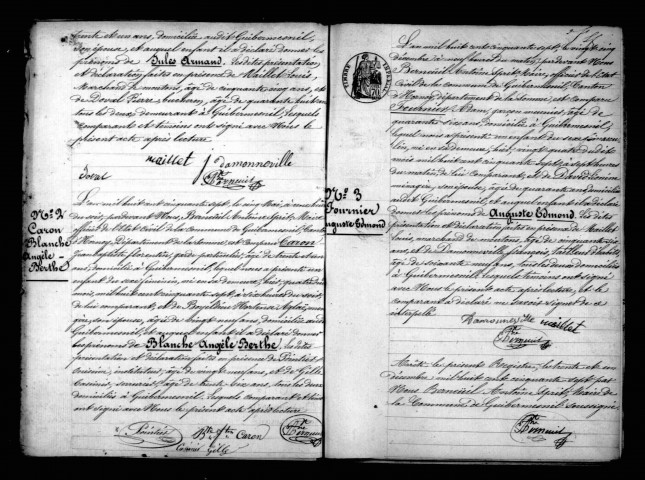 trente et un ans, domiciliée audit Guibermesnil,
son épouse, et auquel enfant il a déclaré donner les
prénoms de Jules Armand, lesdites présentation
et déclaration faites en présence de Maillet Louis,
Marchand de moutons, âgé de cinquante cinq ans, et
de Doval Pierre, âgé de quarante huit ans
tous les deux demeurant à Guibermesnil, lesquels
comparants et témoins ont signé avec Nous le
présent acte après lecture
maillet J damonneville
Doval Berneuil
Nº 2
Caron
Blanche
Angèle-
Berthe
L'an mil huit cent cinquante sept, le cinq Mai, à
du soir, pardevant Nous, Berneuil Antoine Sprit, Maire
officier de l'État Civil de la commune de Guibermesnil, Canton
d'Hornoy, Département de la Somme, est comparu Caron
Jean Baptiste florentin, garde particulier, âgé de trente et un
ans, domicilié à Guibermesnil, lequel nous a présenté un
enfant du sexe féminin, né en sa demeure, hier, quatre de ce
mois, mil huit cent cinquante sept, à six heures du soir,
de lui comparant, et de Hortense Aglaé, ména-
gère, son épouse, âgée de vingt ans, domiciliée au dit
Guibermesnil, et auquel enfant il a déclaré donner
les prénoms de Blanche Angèle Berthe, lesdites
présentation et déclaration faites en présence de
instituteur, âgé de vingt neuf ans, et de Gille
Casimir, serrurier, âgé de trente dix ans, tous les deux
domiciliés à Guibermesnil, lesquels comparant et témoins
ont signé avec Nous le présent acte après lecture
Bte ftin Caron Berneuil
Casimir Gille
TIMBRE IMPERIAL
Nº 3
Fournier
Auguste Edmond
L'an mil huit cent cinquante sept, le vingt cinq
décembre à neuf heures du matin, pardevant Nous
Berneuil Antoine Sprit, Maire, officier de l'État
Civil de la commune de Guibermesnil, Canton
d'Hornoy, département de la Somme, est comparu
Fournier, âgé de
quarante ans, domicilié à Guibermesnil,
lequel nous a présenté un enfant du sexe mascu-
lin, né en sa demeure, hier, vingt quatre dudit
mois mil huit cent cinquante sept, à sept heures
du matin, de lui comparant, et de
ménagère, son épouse, âgée de quarante ans, domiciliée
audit Guibermesnil, et auquel enfant il a déclaré
donner les prénoms de Auguste Edmond, lesdites
présentation et déclaration faites en présence de Maillet
Louis, marchand de moutons, âgé de cinquante six
ans, et de Damonneville tailleur d'habits,
âgé de ans, tous les deux domiciliés
à Guibermesnil, lesquels témoins ont signé
avec Nous le présent acte, après lecture, et le
comparant a déclaré ne savoir signer de ce
interpellé
Damonneville maillet
Berneuil
Arrêté le présent Registre, le trente et un
décembre mil huit cent cinquante sept par
Nous Berneuil Antoine Sprit, Maire de
la Commune de Guibermesnil, Soussigné
Berneuil